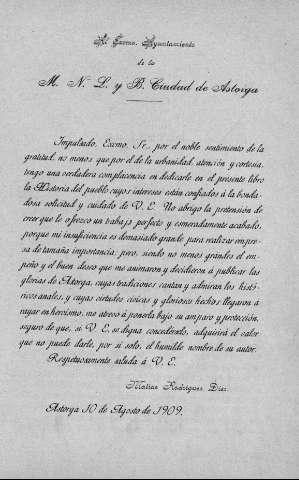 Al Excmo. Ayuntamiento
de la
M. N. L. y B. Ciudad de Astorga
Impulsado, Excmo. Sr., por el noble sentimiento de la
gratitud, no menos que por el de la urbanidad, atención y cortesía,
tengo una verdadera complacencia en dedicarle en el presente libro
la Historia del pueblo cuyos intereses están confiados á la bonda-
dosa solicitud y cuidado de V. E. No abrigo la pretensión de
creer que le ofrezco un trabajo perfecto y esmeradamente acabado,
porque mi insuficiencia es demasiado grande para realizar empre-
sa de tamaña importancia; pero, siendo no menos grandes el em-
peño y el buen deseo que me animaron y decidieron á publicar las
glorias de Astorga, cuyas tradiciones cantan y admiran los histó-
ricos anales, y cuyas virtudes cívicas y gloriosos hechos llegaron á
rayar en heroísmo, me atrevo á ponerla bajo su amparo y protección,
seguro de que, si V. E. se digna concedérselo, adquirirá el valor
que no puede darle, por sí solo, el humilde nombre de su autor.
Respetuosamente saluda á V. E.
Matías Rodríguez Díez.
Astorga 10 de Agosto de 1909.